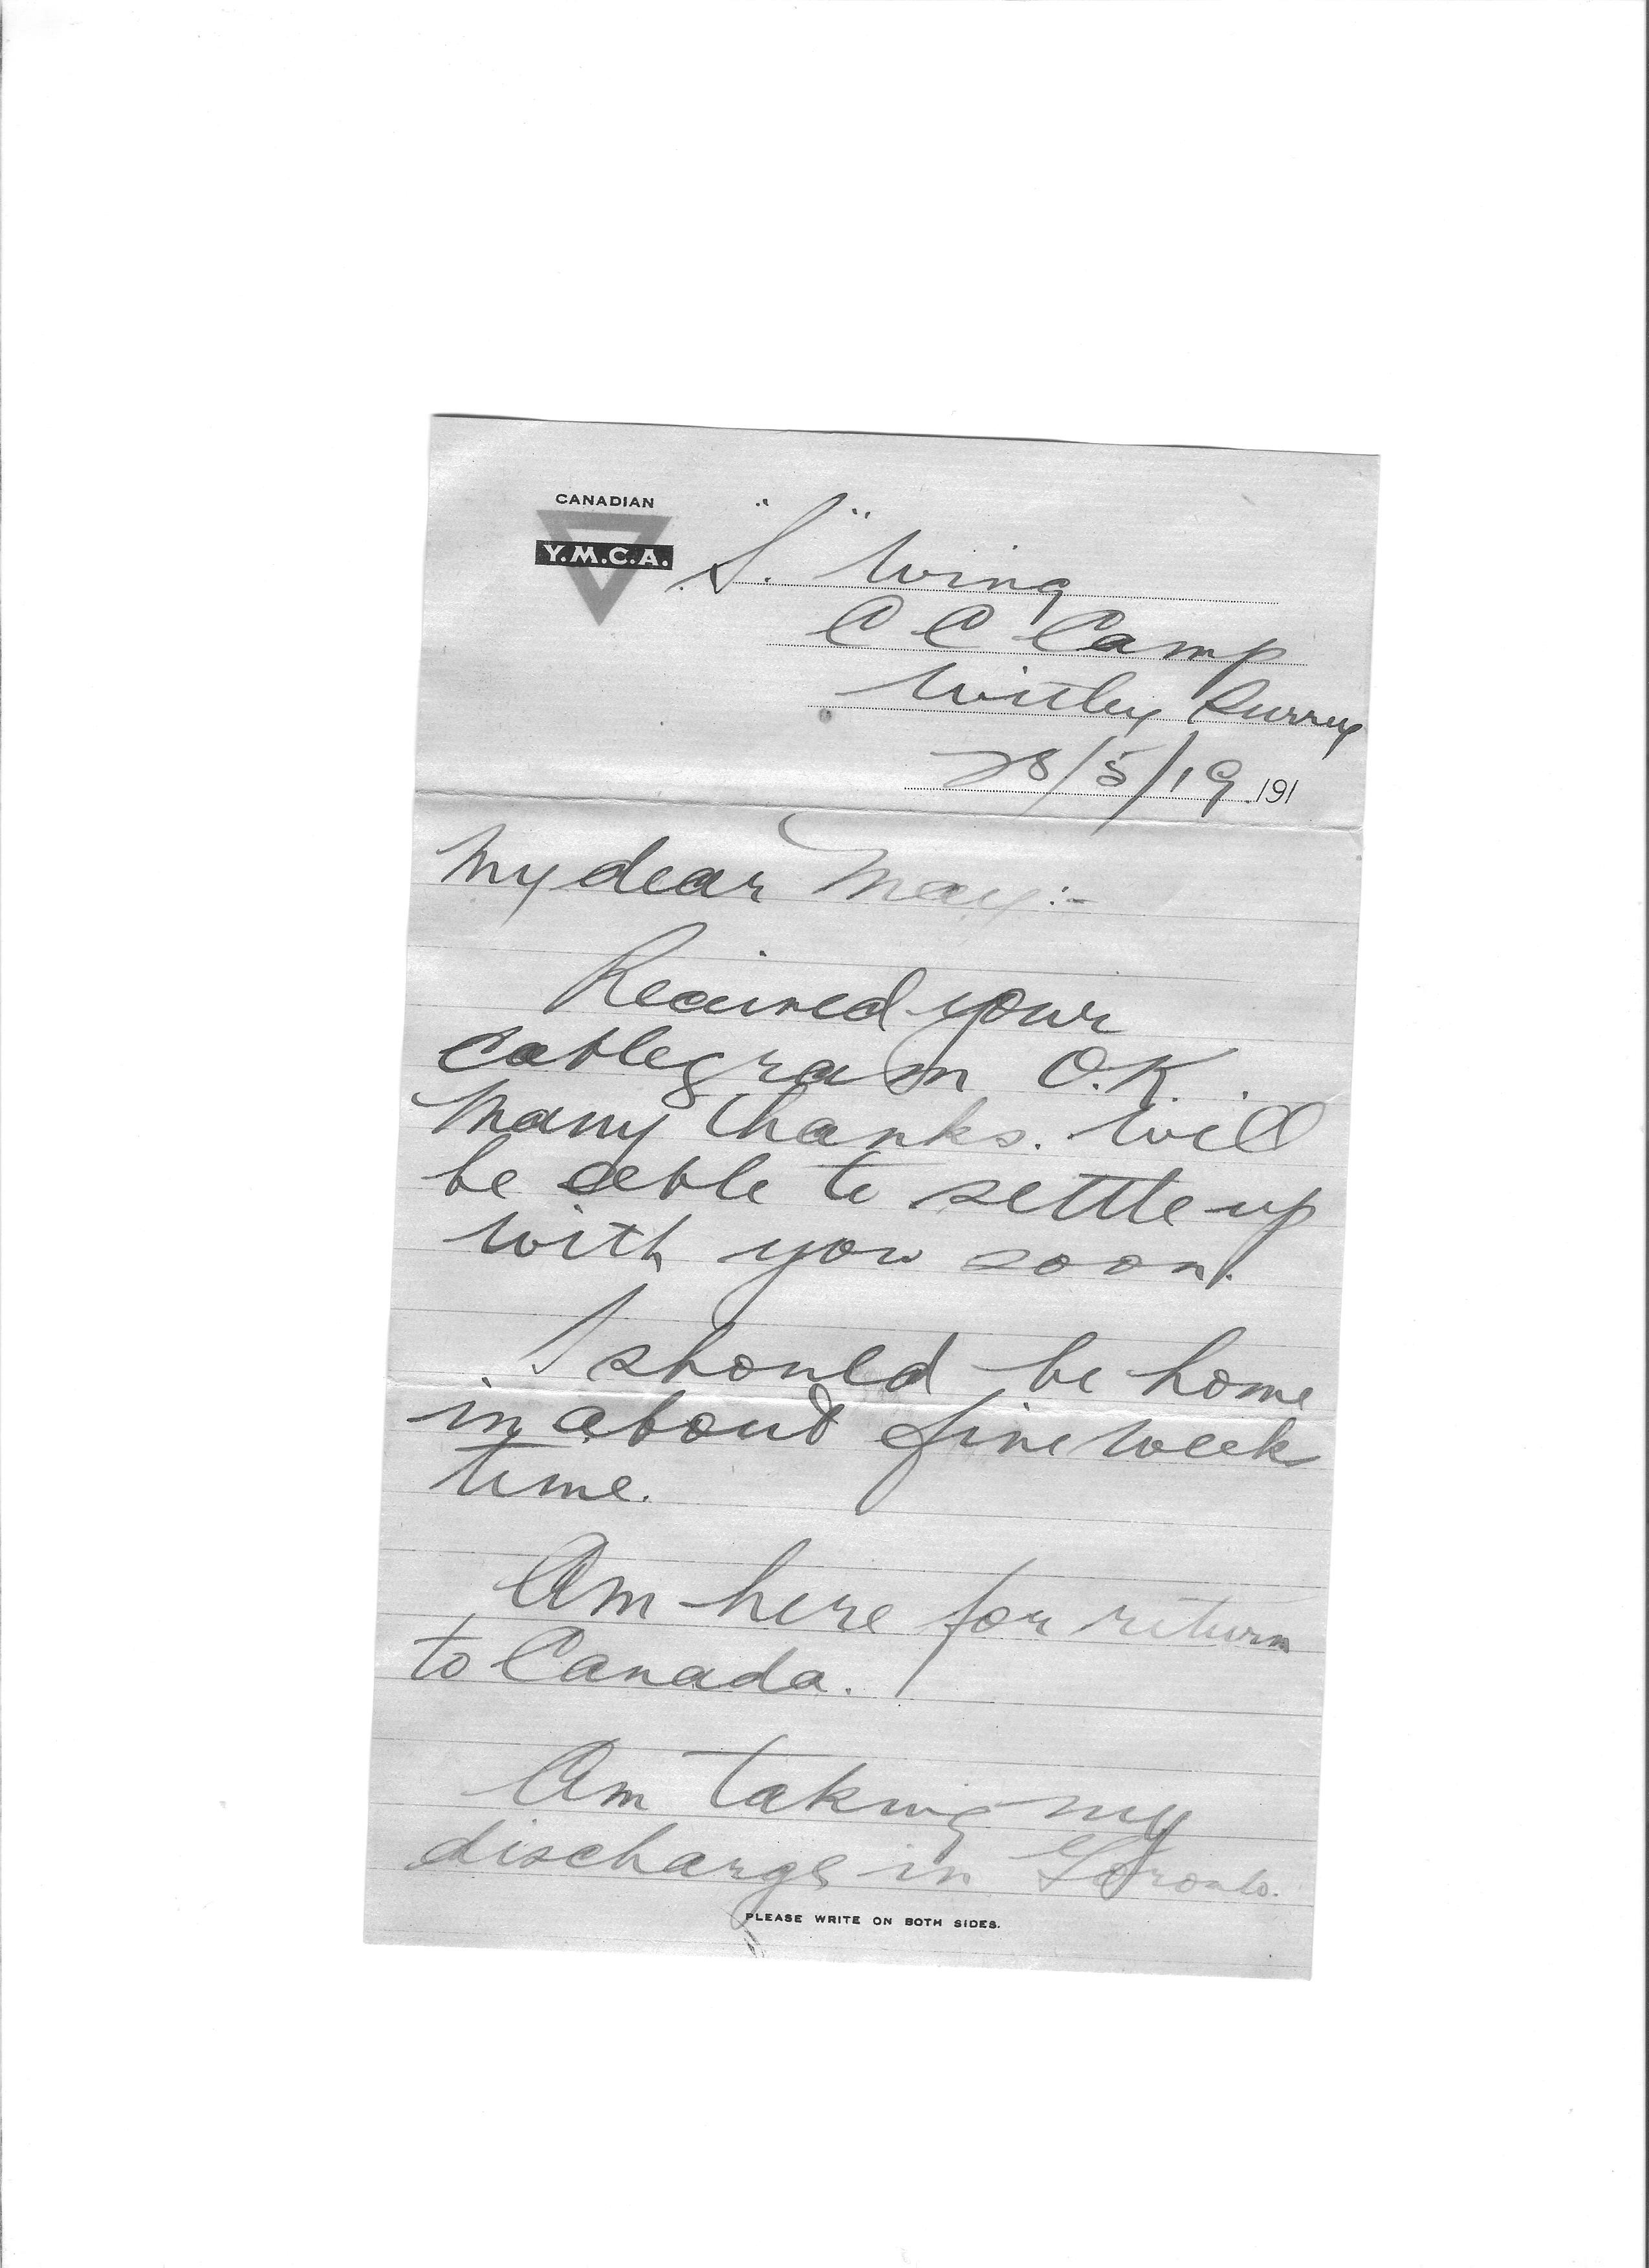 CANADIAN
Y.M.C.A.
"S." Wing
C C Camp
Witley Surrey
28/5/19 191
My dear May:-
Received your
cablegram O.K.
Many thanks. Will
be able to settle up
with you soon.
I should be home
in about five week
time.
Am here for return
to Canada.
Am taking my
discharge in Toronto.
PLEASE WRITE ON BOTH SIDES.